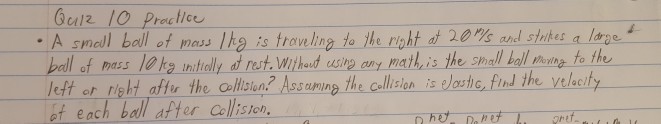 Quiz 10 Practice
• A small ball of mass 1kg is traveling to the right at 20 m/s and strikes a large
ball of mass 10kg initially at rest. Without using any math, is the small ball moving to the
left or right after the collision? Assuming the collision is elastic, find the velocity
of each ball after collision.